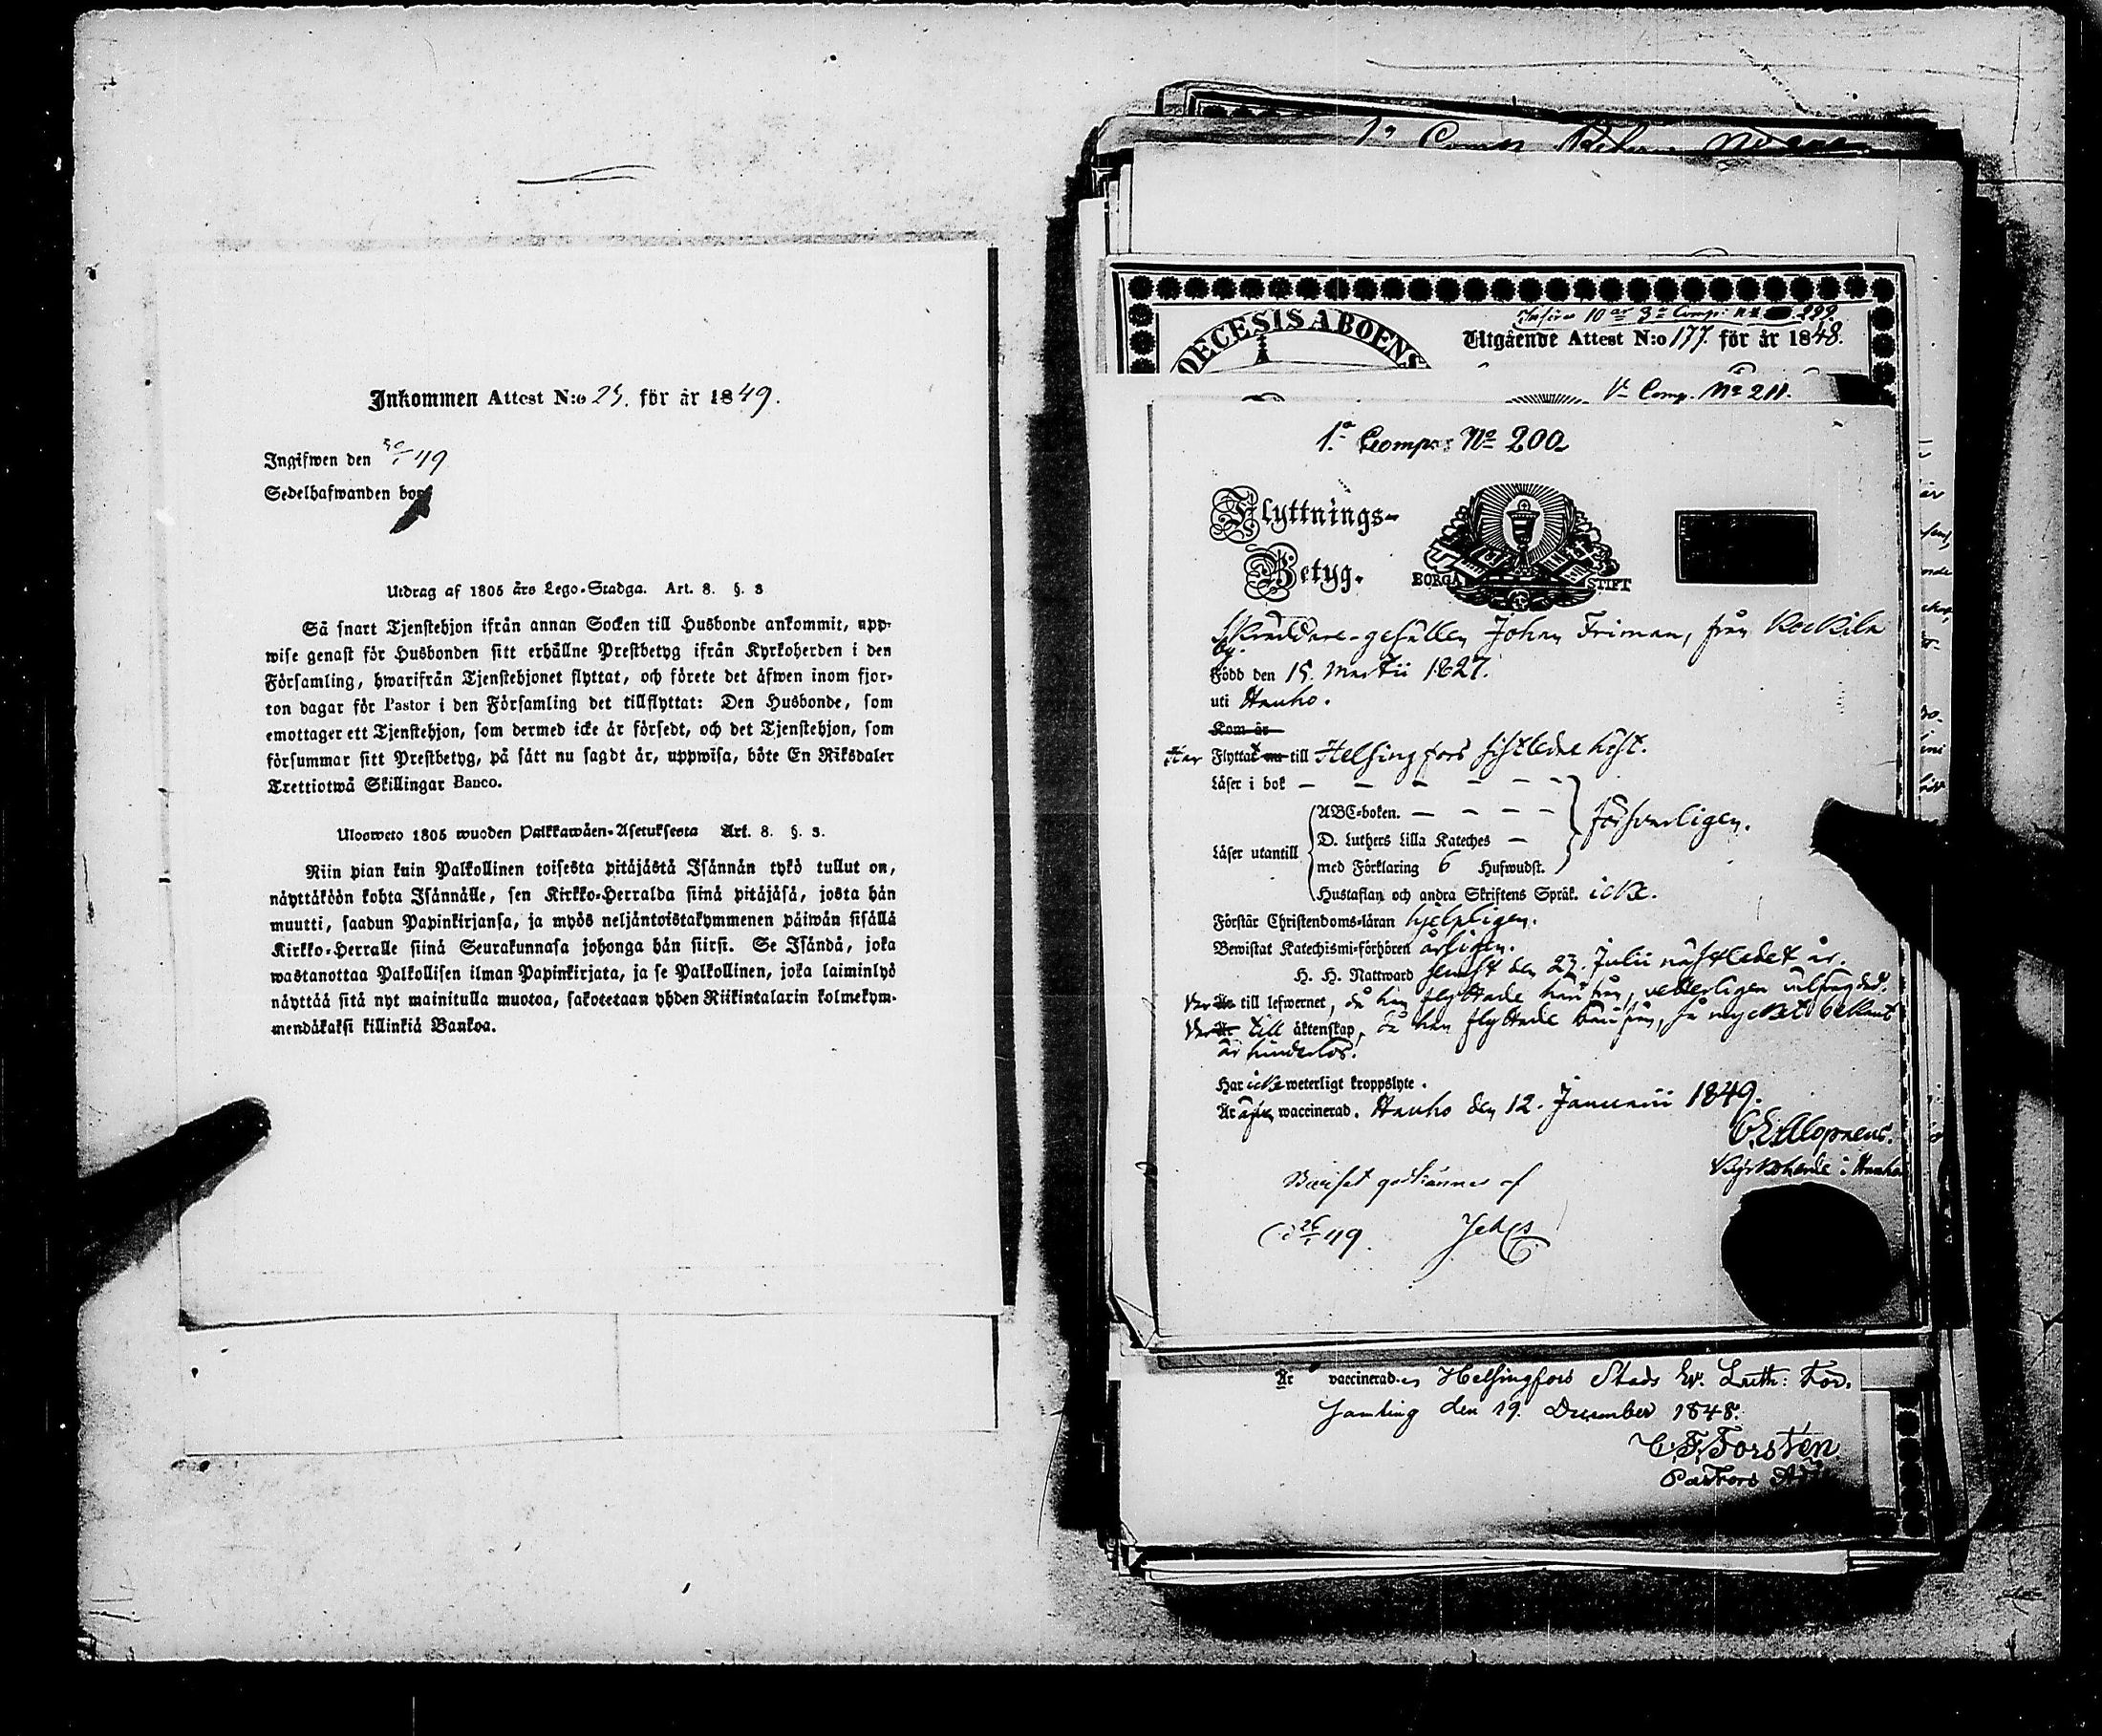 Inkommen Attest N:o 25. för år 1849.
Ingifwen den 30/1 49
Sedelhafwanden bor
Utdrag af 1805 års Lego-Stadga. Art. 8. §. 3
Så snart Tjenstehjon ifrån annan Socken till Husbonde ankommit, upp-
wise genast för Husbonden sitt erhållne Prestbetyg ifrån Kyrkoherden i den
Församling, hwarifrån Tjenstehjonet flyttat, och förete det äfwen inom fjor-
ton dagar för Pastor i den Församling det tillflyttat: Den Husbonde, som
emottager ett Tjenstehjon, som dermed icke är försedt, och det Tjenstehjon, som
försummar sitt Prestbetyg, på sätt nu sagdt är, uppwisa, böte En Riksdaler
Trettiotwå Skillingar Banco.
Ulosweto 1805 wuoden Palkkawäen-Asetuksesta Art. 8. §. 3.
Niin pian kuin Palkollinen toisesta pitäjästä Isännän tykö tullut on,
näyttäköön kohta Isännälle, sen Kirkko-Herralda siinä pitäjäsä, josta hän
muutti, saadun Papinkirjansa, ja myös neljäntoistakymmenen päiwän sisällä
Kirkko-Herralle siinä Seurakunnasa johonga hän siirsi. Se Isändä, joka
wastanottaa Palkollisen ilman Papinkirjata, ja se Palkollinen, joka laiminlyö
näyttää sitä nyt mainitulla muotoa, sakotetaan yhden Riikintalarin kolmekym-
mendäkaksi killinkiä Bankoa.
OECESIS ABOENS
Utgående Attest N:o 177. för år 1848.
1a Comp. No 211.
1a Comp: No 200
Flyttnings-
Betyg.
BORGÅ STIFT
Skräddare-gesällen Johan Friman, från Kokkila
by.
Född den 15. Martii 1827.
uti Hauho.
Kom år
Har Flyttat nu till Helsingfors sistledne höst.
Läser i bok
Läser utantill
ABC-boken.
D. Luthers Lilla Kateches
med Förklaring 6 Hufwudst.
försvarligen.
Hustaflan och andra Skriftens Språk. icke.
Förstår Christendoms-läran hjelpligen.
Bewistat Katechismi-förhören årligen.
H. H. Nattward senast den 23. Julii nästledet år.
Var Är till lefwernet, då han flyttade härifrån, vetterligen välfrägdad.
Var Är till äktenskap, då han flyttade härifrån, så mycket bekant
är hinderlös.
Har icke weterligt kroppslyte.
Är äfven waccinerad. Hauho den 12. Januarii 1849.
Kyrkoherde i Hauho
Beviset godkännes af
Är vaccinerad. Helsingfors Stads Ev. Luth: För-
samling den 19. December 1848.
C. F. Forstén
Pastors Adj.